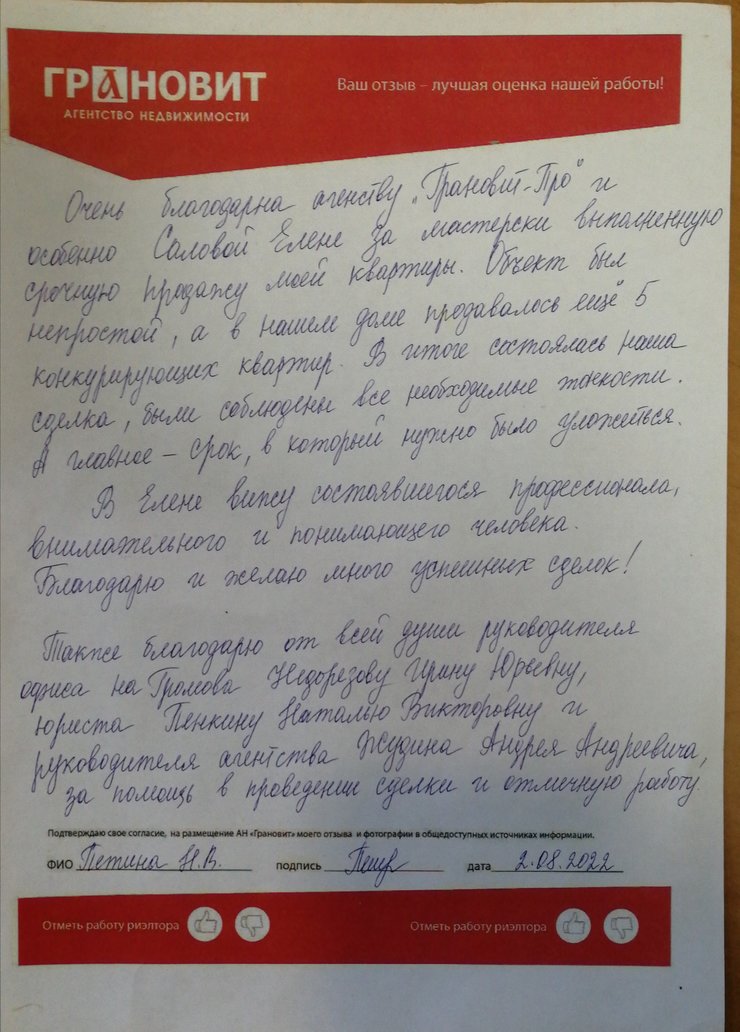 ГРАНОВИТ
АГЕНТСТВО НЕДВИЖИМОСТИ
Ваш отзыв – лучшая оценка нашей работы!
Очень благодарна агенству „Грановит-Про" и
особенно Саловой Елене за мастерски выполненную
срочную продажу моей квартиры. Объект был
непростой, а в нашем доме продавалось ещё 5
конкурирующих квартир. В итоге состоялась наша
сделка, были соблюдены все необходимые тонкости.
А главное – срок, в который нужно было уложиться.
В Елене вижу состоявшегося профессионала,
внимательного и понимающего человека.
Благодарю и желаю много успешных сделок!
Также благодарю от всей души руководителя
офиса на Громова Недорезову Ирину Юрьевну,
юриста Пенкину Наталью Викторовну и
руководителя агентства Жудина Андрея Андреевича,
за помощь в проведении сделки и отличную работу.
Подтверждаю свое согласие, на размещение АН «Грановит» моего отзыва и фотографии в общедоступных источниках информации.
ФИО Петина Н.В. подпись дата 2.08.2022
Отметь работу риэлтора Отметь работу риэлтора